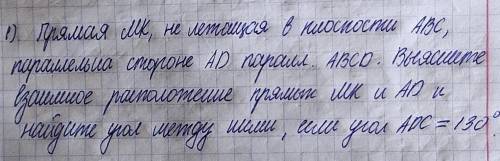 1) Прямая МК, не лежащая в плоскости АВС,
параллельна стороне AD паралл. ABCD. Выясните
взаимное расположение прямых МК и AD и
найдите угол между ними, если угол ADC = 130°.